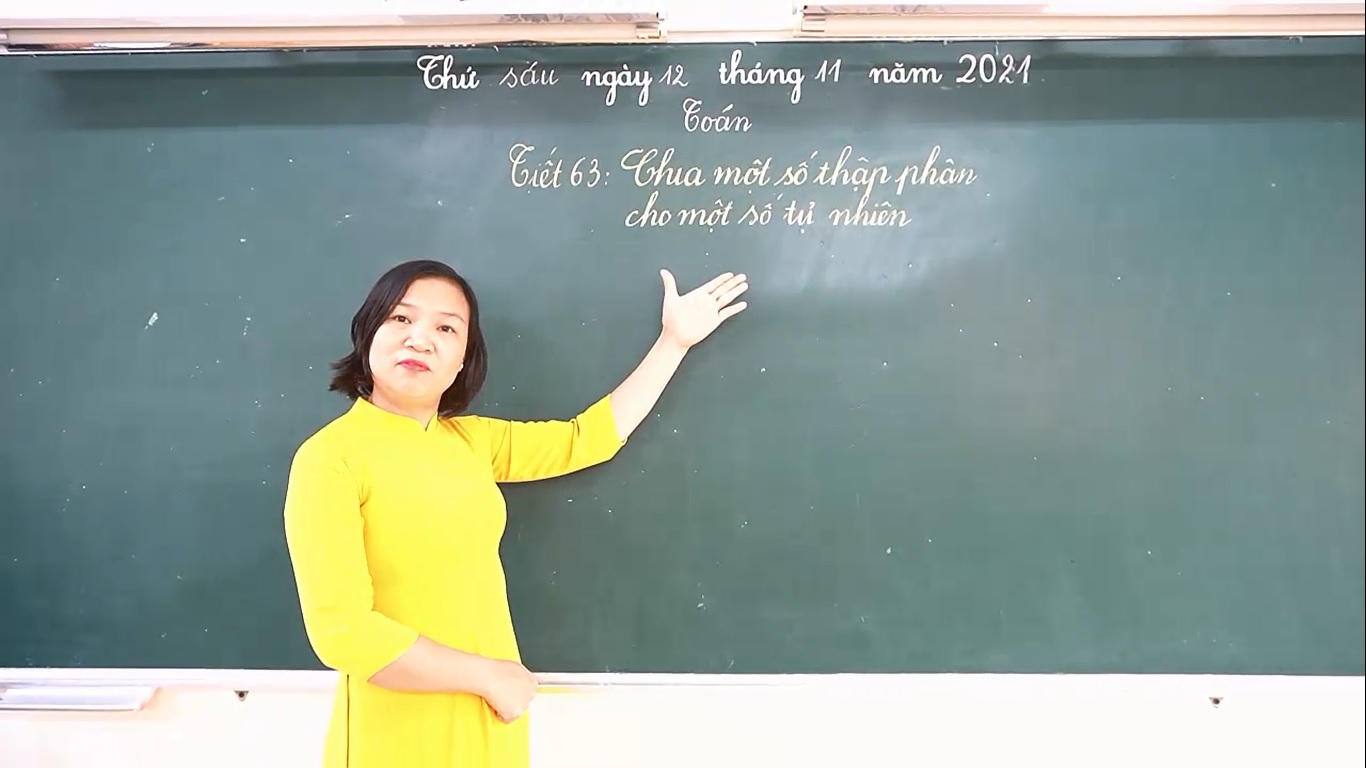 Thứ sáu ngày 12 tháng 11 năm 2021
Toán
Tiết 63: Chia một số thập phân
cho một số tự nhiên